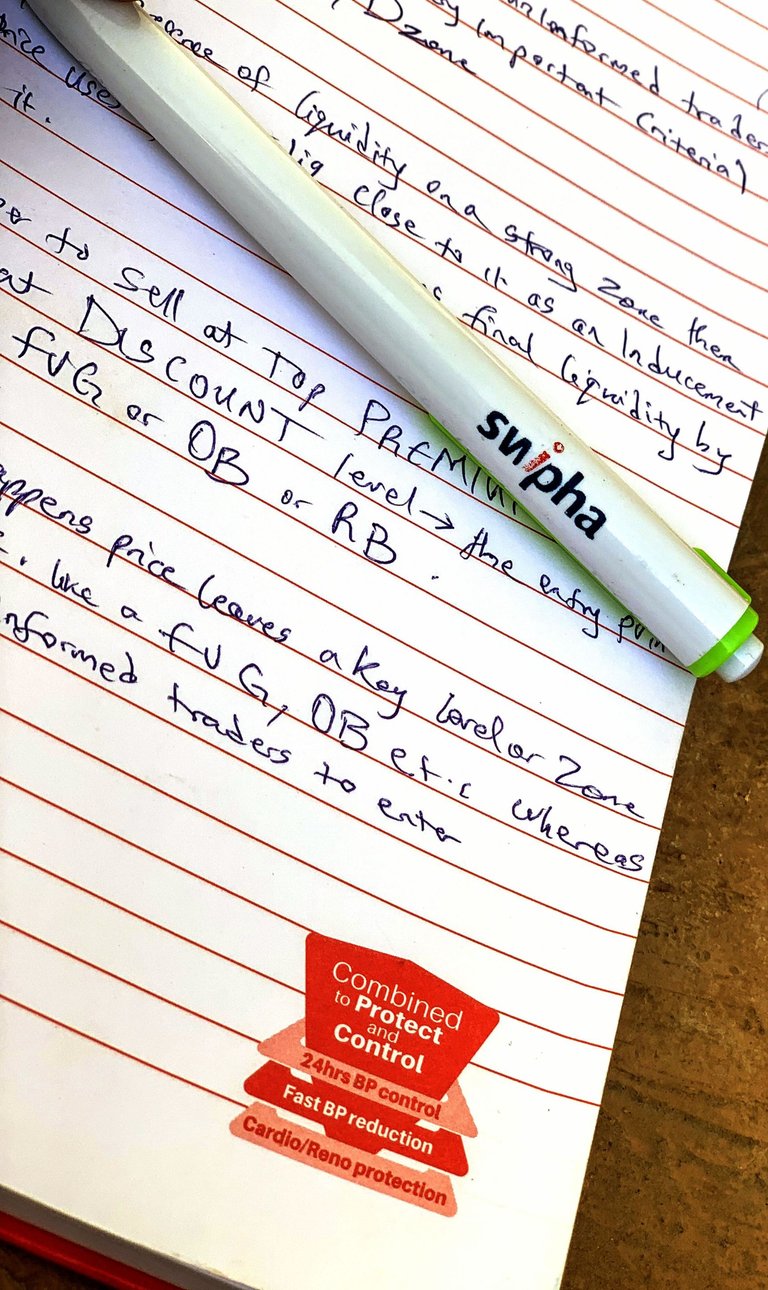 uninformed trader
important Criteria)
D zone
of liquidity on a strong zone then
price uses close to it as an Inducement
it. final liquidity by
to sell at TOP PREMIU
at DISCOUNT level → the entry poin
FVG or OB or RB.
appens price leaves a key level or zone
like a FVG, OB et.c whereas
nformed traders to enter
snipha
Combined
to Protect
and
Control
24hrs BP control
Fast BP reduction
Cardio/Reno protection